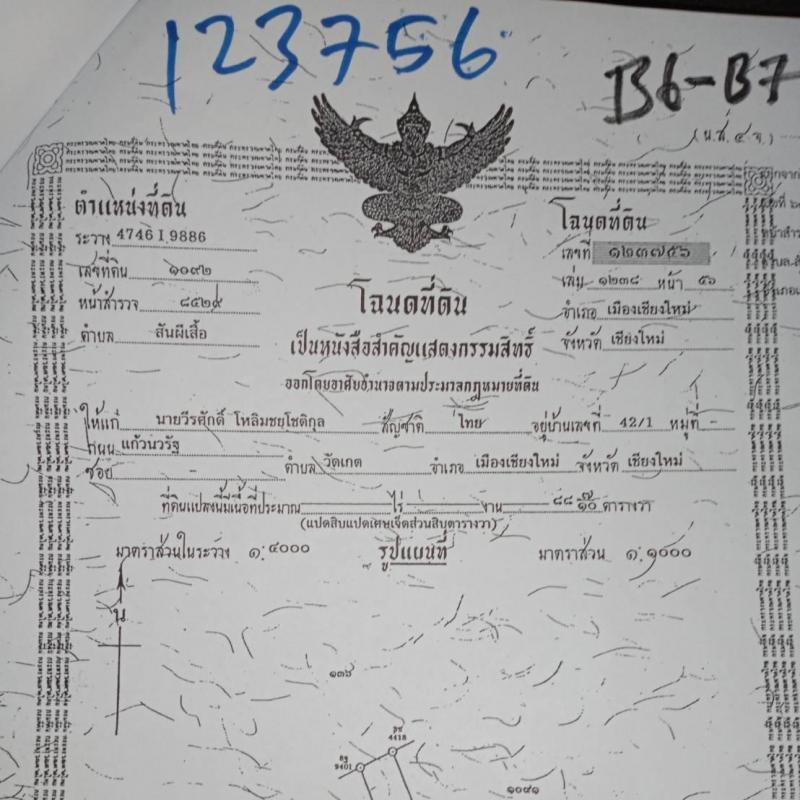 123756
B6-B7
(น.ส. ๔ จ.)
ตำแหน่งที่ดิน
ระวาง 4746 I 9886
เลขที่ดิน ๑๐๙๒
หน้าสำรวจ ๘๕๒๙
ตำบล สันผีเสื้อ
โฉนดที่ดิน
เลขที่ ๑๒๓๗๕๖
เล่ม ๑๒๓๘ หน้า ๕๖
อำเภอ เมืองเชียงใหม่
จังหวัด เชียงใหม่
โฉนดที่ดิน
เป็นหนังสือสำคัญแสดงกรรมสิทธิ์
ออกโดยอาศัยอำนาจตามประมวลกฎหมายที่ดิน
ให้แก่ นายวีรศักดิ์ โหลิมชยโชติกุล สัญชาติ ไทย อยู่บ้านเลขที่ 42/1 หมู่ที่ -
ถนน แก้วนวรัฐ
ซอย - ตำบล วัดเกต อำเภอ เมืองเชียงใหม่ จังหวัด เชียงใหม่
ที่ดินแปลงนี้มีเนื้อที่ประมาณ ไร่ งาน ๘๘ ๗/๑๐ ตารางวา
(แปดสิบแปดเศษเจ็ดส่วนสิบตารางวา)
มาตราส่วนในระวาง ๑:๔๐๐๐ รูปแผนที่ มาตราส่วน ๑:๑๐๐๐
น
๑๓๖
4418
9401
๑๐๔๑